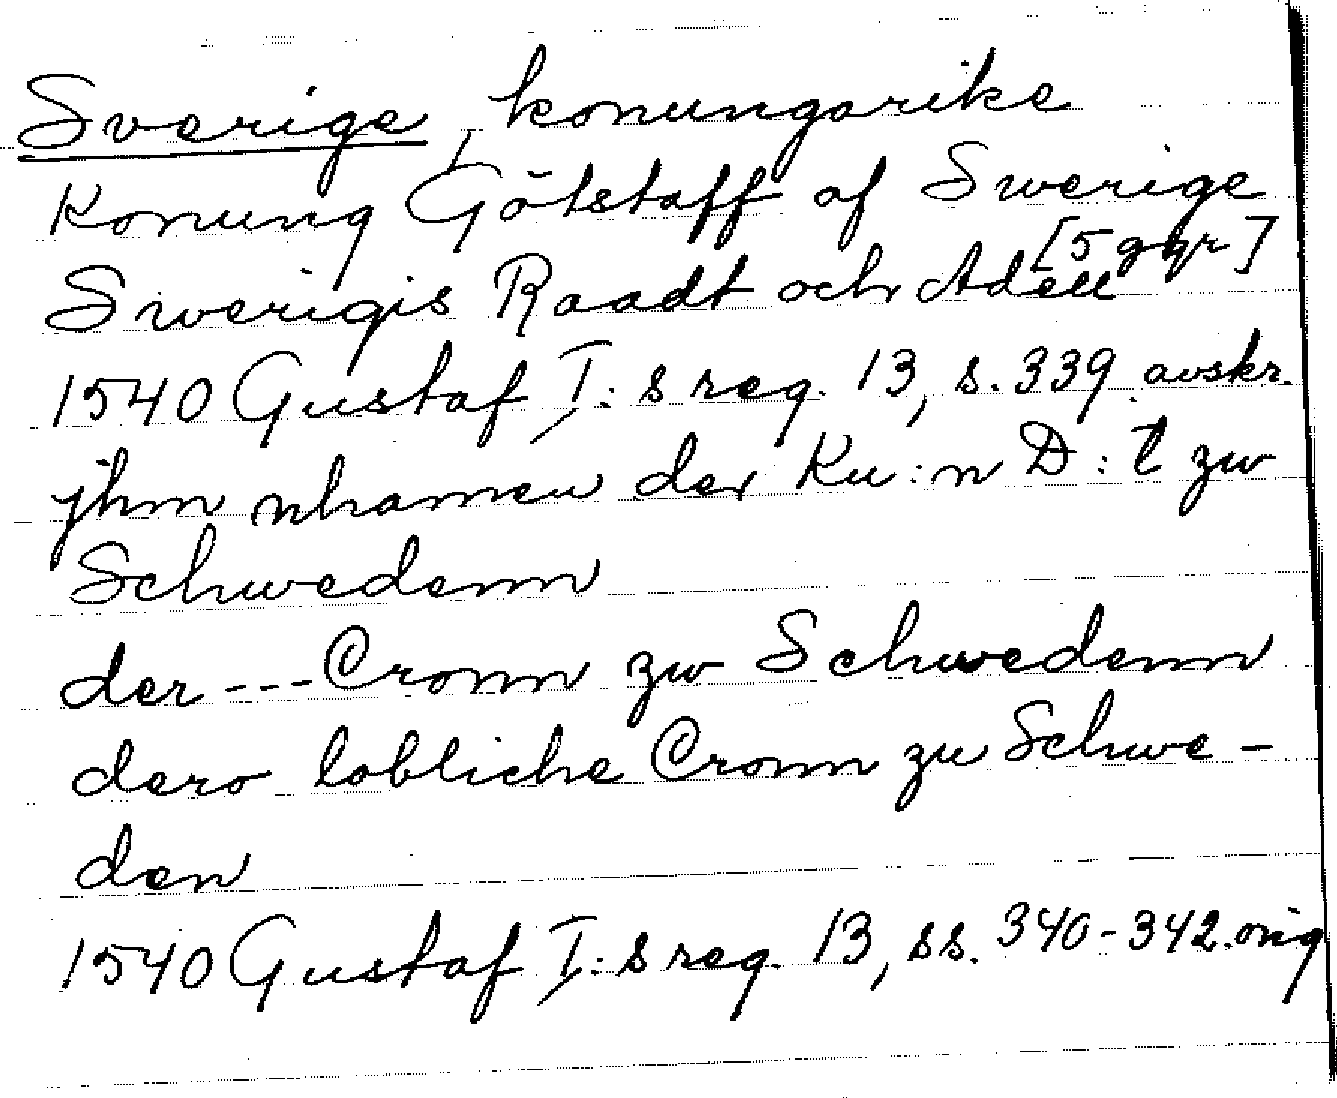 Sverige, konungarike
Konung Götstaff af Swerige
[5 ggr]
Swerigis Raadt och Adell
1540 Gustaf I:s reg. 13, s. 339 avskr.
jhm nhamen der Ku:n D:t zw
Schwedenn
der --- Cronn zw Schwedenn
dero lobliche Cronn zu Schwe-
den
1540 Gustaf I:s reg. 13, ss. 340-342. orig